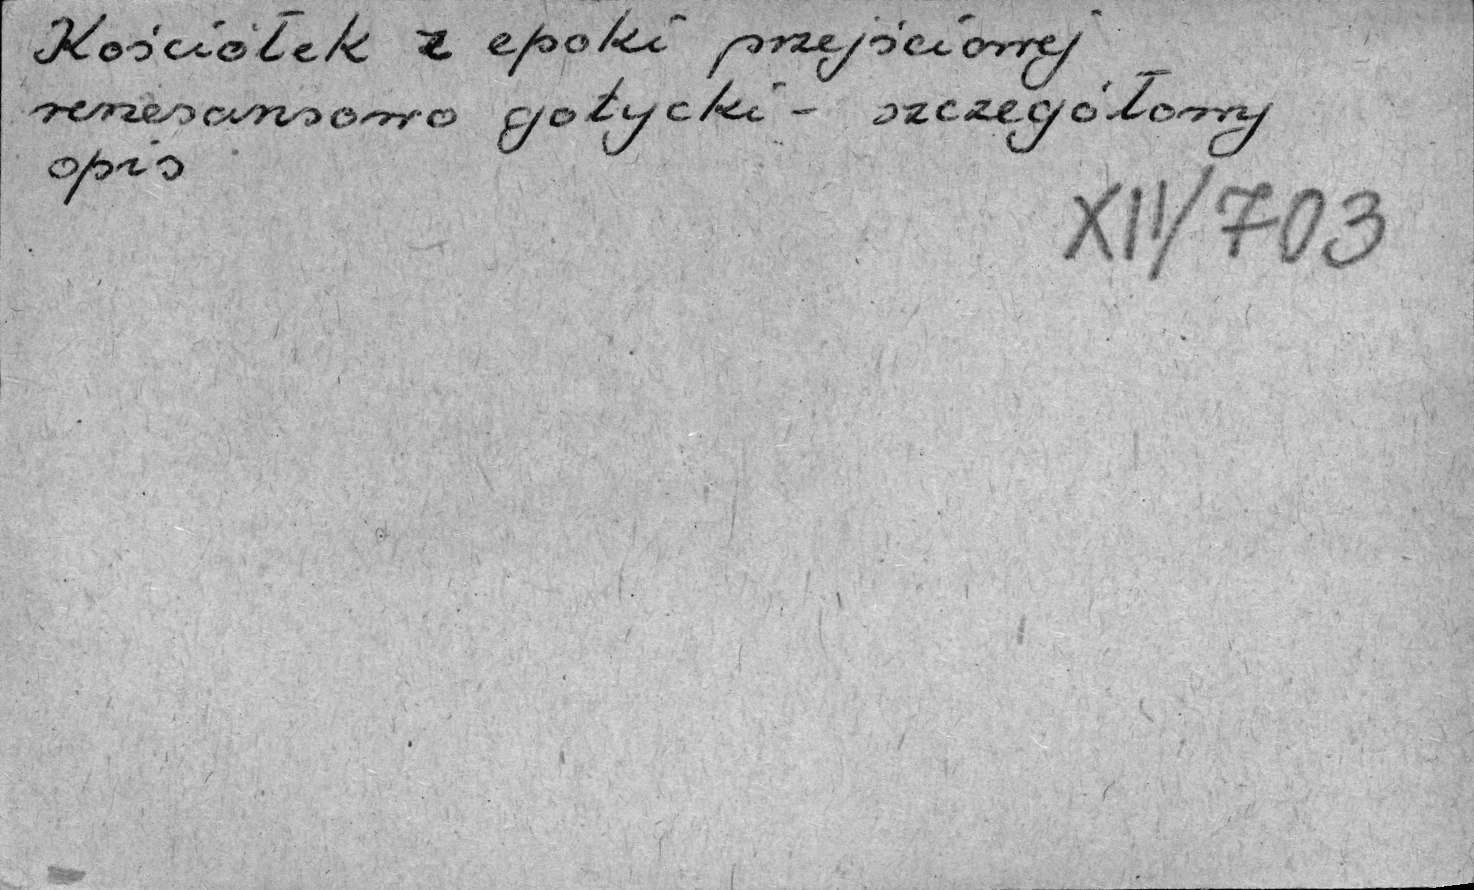 Kościółek z epoki przejściowej
renesansowo gotycki - szczegółowy
opis
XII/703